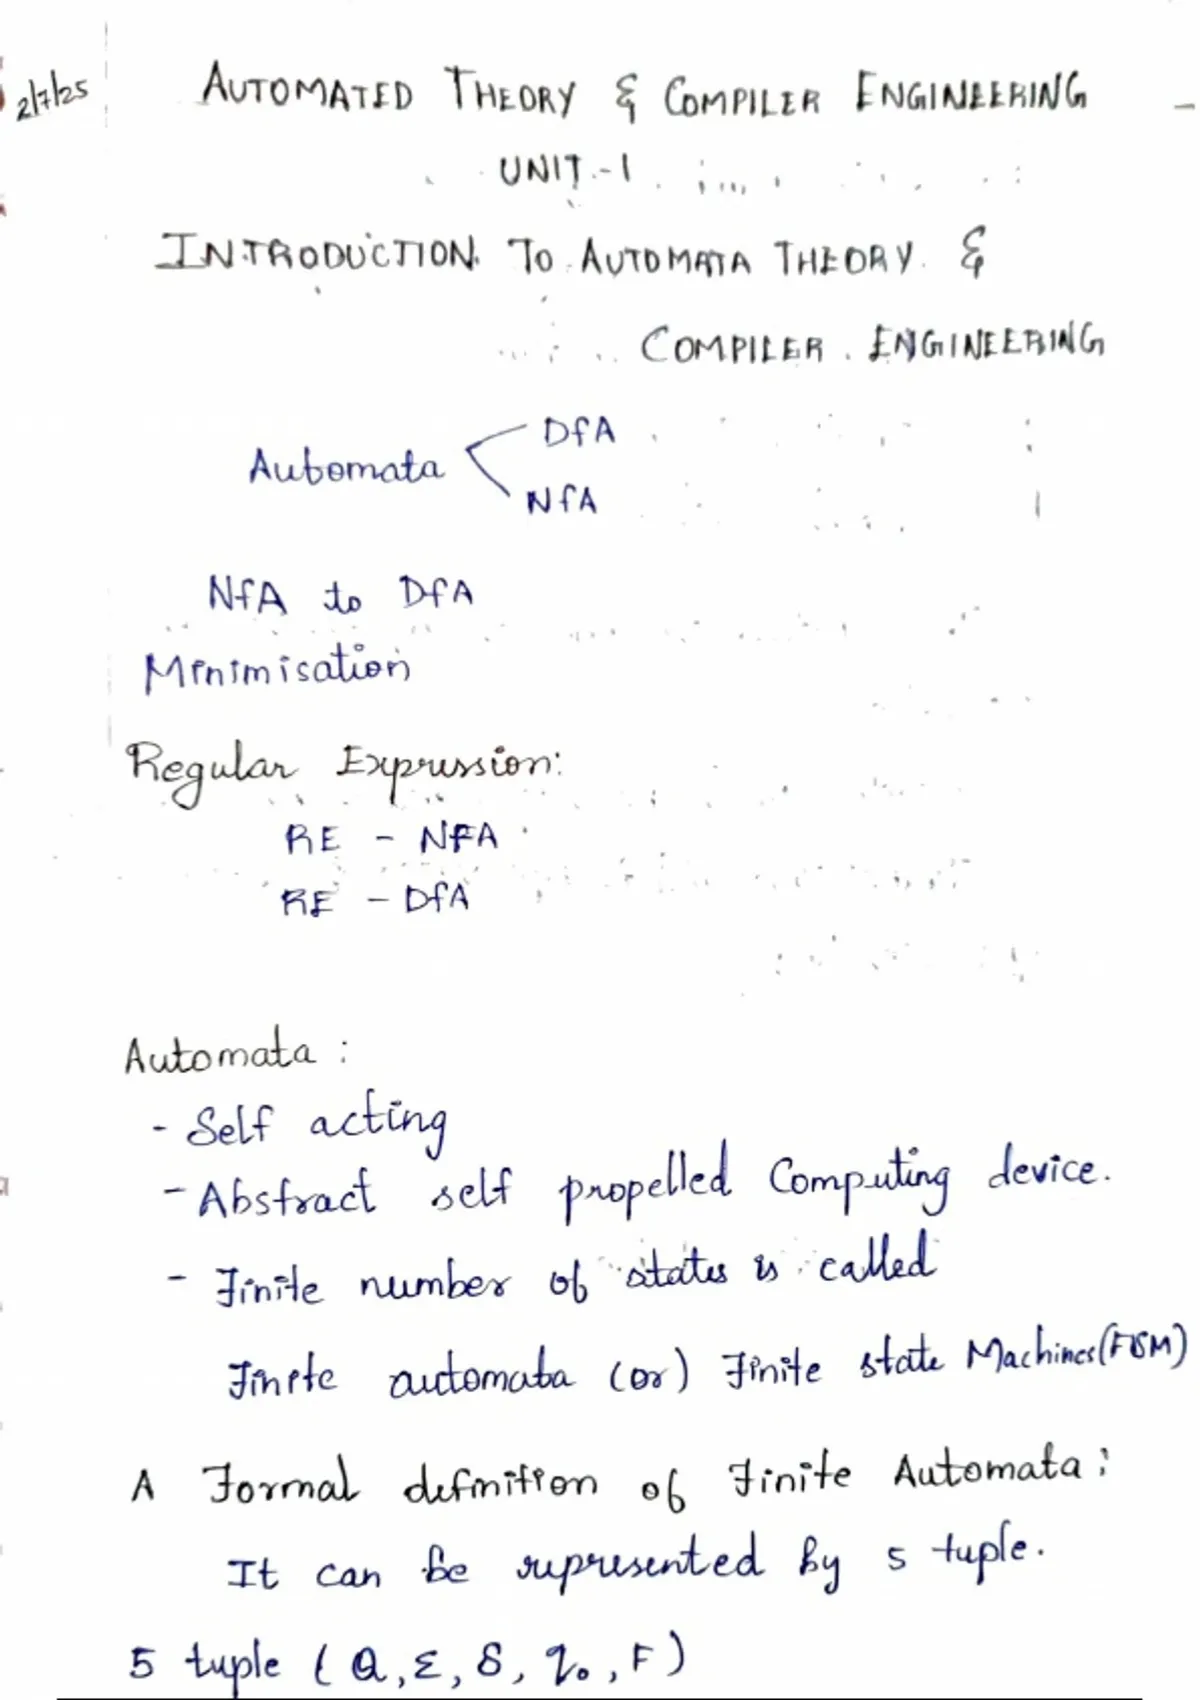 2/7/25
AUTOMATED THEORY & COMPILER ENGINEERING
UNIT-1
INTRODUCTION TO AUTOMATA THEORY &
COMPILER ENGINEERING
Automata DFA
NFA
NFA to DFA
Minimisation
Regular Expression:
RE - NFA
RE - DFA
Automata :
- Self acting
- Abstract self propelled Computing device.
- Finite number of states is called
Finite automata (or) Finite state Machines (FSM)
A Formal definition of Finite Automata :
It can be represented by 5 tuple.
5 tuple ( Q, Σ, δ, q₀, F )